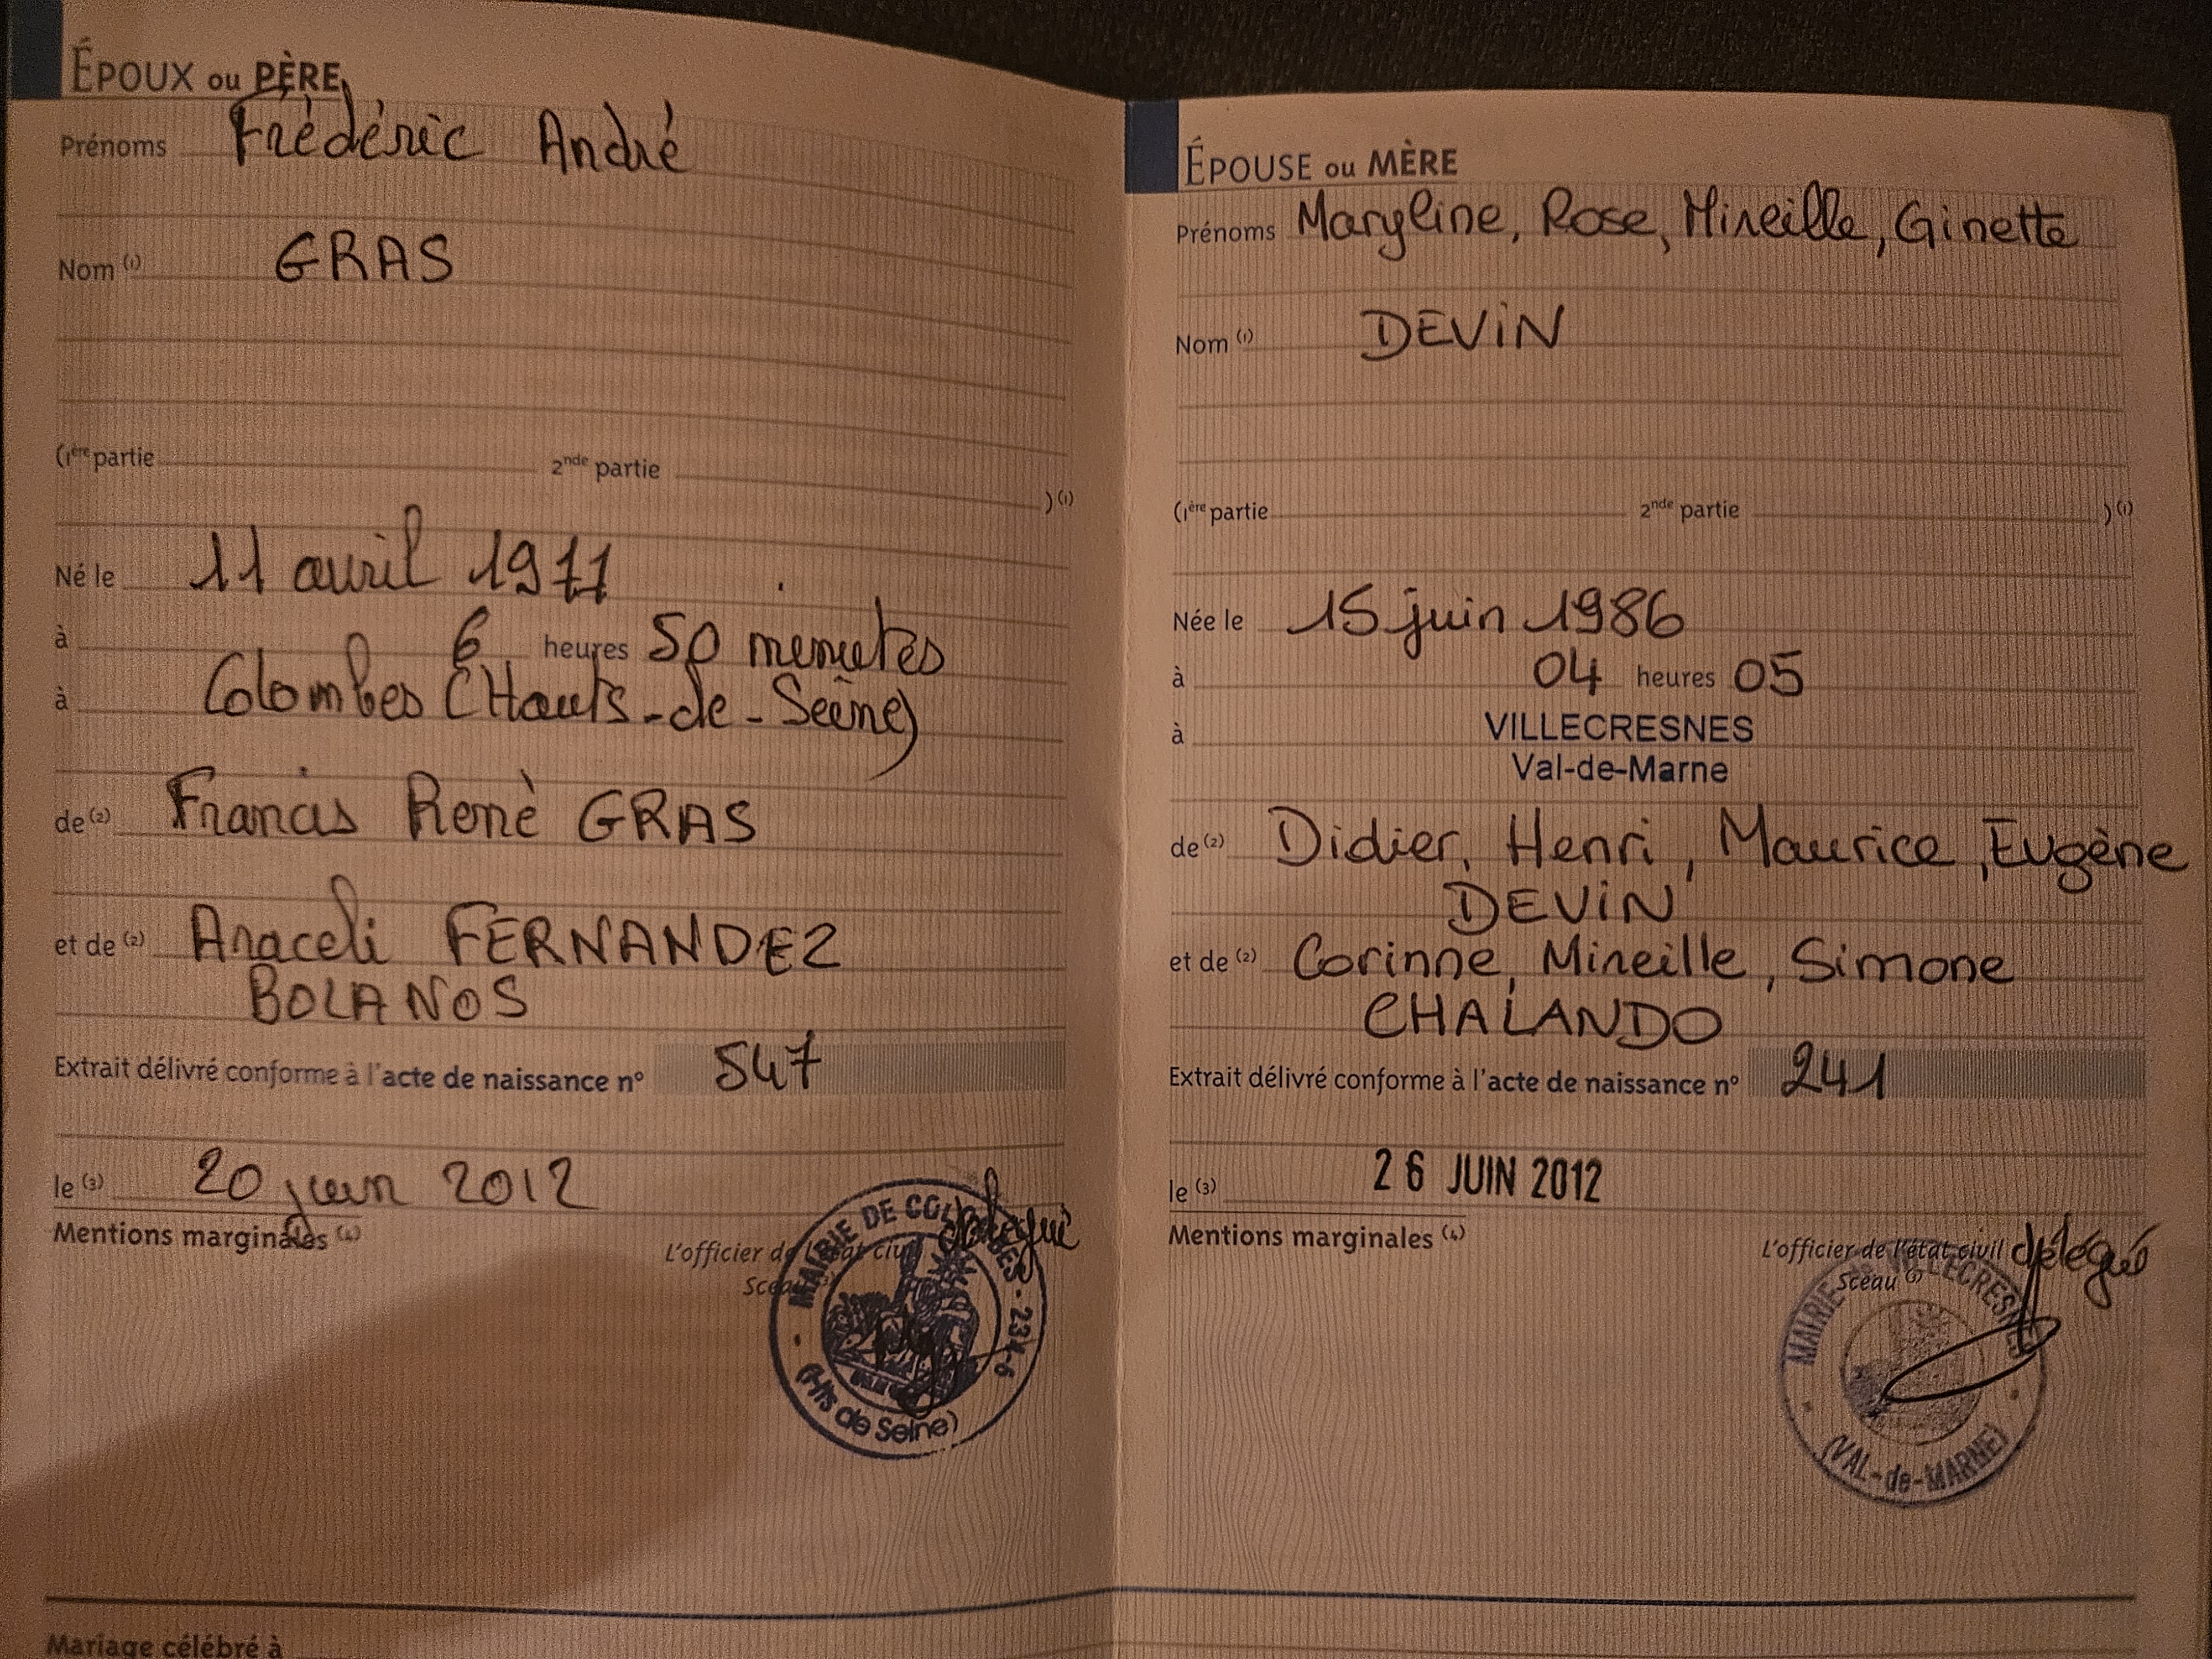 ÉPOUX ou PÈRE
Prénoms Frédéric André
Nom (1) GRAS
(1ère partie 2nde partie )(1)
Né le 11 avril 1977
à 6 heures 50 minutes
à Colombes (Hauts-de-Seine)
de (2) Francis Renè GRAS
et de (2) Araceli FERNANDEZ
BOLANOS
Extrait délivré conforme à l'acte de naissance n° 547
le (3) 20 juin 2012
Mentions marginales (4)
L'officier de l'état civil délégué
Sceau (3)
MAIRIE DE COLOMBES - 234-6
(Hts de Seine)
Mariage célébré à
ÉPOUSE ou MÈRE
Prénoms Maryline, Rose, Mireille, Ginette
Nom (1) DEVIN
(1ère partie 2nde partie )(1)
Née le 15 juin 1986
à 04 heures 05
à VILLECRESNES
Val-de-Marne
de (2) Didier, Henri, Maurice, Eugène
DEVIN
et de (2) Corinne, Mireille, Simone
CHALANDO
Extrait délivré conforme à l'acte de naissance n° 241
le (3) 26 JUIN 2012
Mentions marginales (4)
L'officier de l'état civil délégué
Sceau (3)
MAIRIE DE VILLECRESNES
(VAL-de-MARNE)